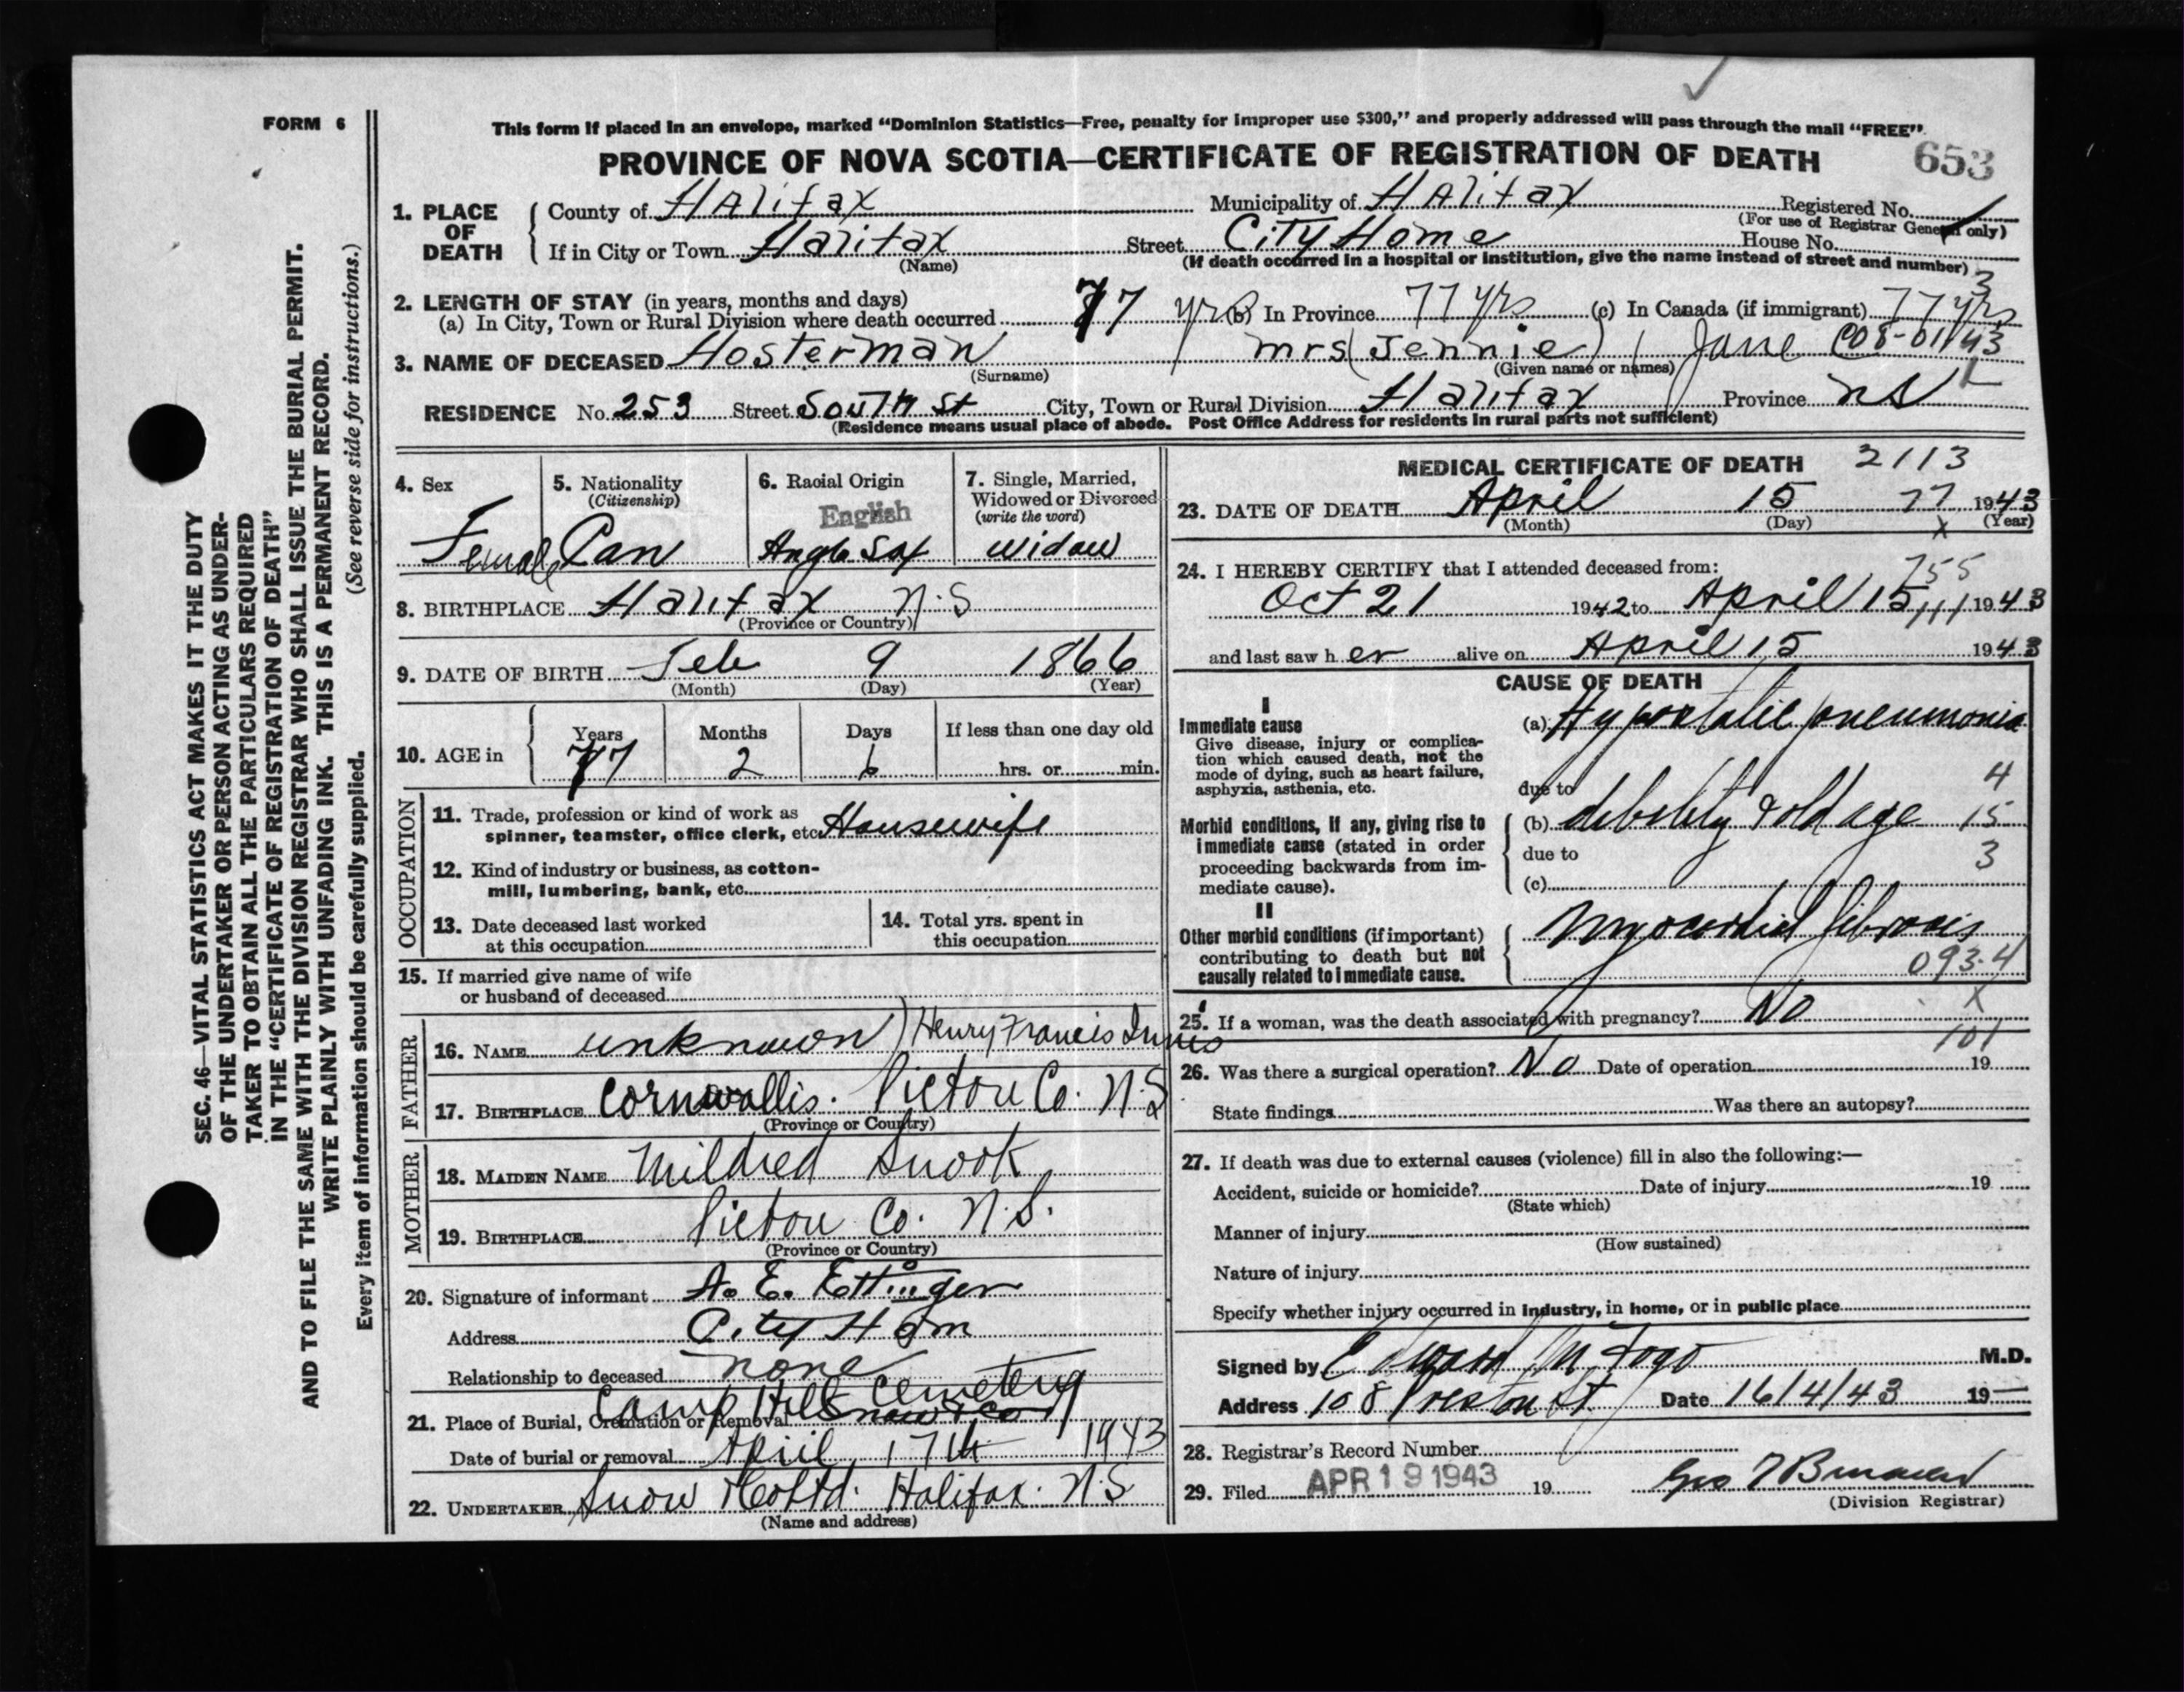 FORM 6
This form if placed in an envelope, marked "Dominion Statistics—Free, penalty for improper use $300," and properly addressed will pass through the mail "FREE".
PROVINCE OF NOVA SCOTIA—CERTIFICATE OF REGISTRATION OF DEATH 653
SEC. 46—VITAL STATISTICS ACT MAKES IT THE DUTY
OF THE UNDERTAKER OR PERSON ACTING AS UNDER-
TAKER TO OBTAIN ALL THE PARTICULARS REQUIRED
IN THE "CERTIFICATE OF REGISTRATION OF DEATH"
AND TO FILE THE SAME WITH THE DIVISION REGISTRAR WHO SHALL ISSUE THE BURIAL PERMIT.
WRITE PLAINLY WITH UNFADING INK. THIS IS A PERMANENT RECORD.
(See reverse side for instructions.)
Every item of information should be carefully supplied.
1. PLACE OF DEATH
County of Halifax Municipality of Halifax Registered No.
(For use of Registrar General only)
If in City or Town Halifax Street City Home House No.
(Name) (If death occurred in a hospital or institution, give the name instead of street and number)
3
2. LENGTH OF STAY (in years, months and days)
(a) In City, Town or Rural Division where death occurred 77 yrs (b) In Province 77 yrs (c) In Canada (if immigrant) 77 yrs
3. NAME OF DECEASED Hosterman mrs (Jennie) Jane C08-01143
(Surname) (Given name or names)
RESIDENCE No. 253 Street South St City, Town or Rural Division Halifax Province NS
(Residence means usual place of abode. Post Office Address for residents in rural parts not sufficient)
4. Sex
Female
5. Nationality
(Citizenship)
Can
6. Racial Origin
English
Anglo Sax
7. Single, Married,
Widowed or Divorced
(write the word)
widow
8. BIRTHPLACE Halifax N.S
(Province or Country)
9. DATE OF BIRTH Feb 9 1866
(Month) (Day) (Year)
10. AGE in Years Months Days If less than one day old
77 2 6 hrs. or min.
OCCUPATION
11. Trade, profession or kind of work as
spinner, teamster, office clerk, etc. Housewife
12. Kind of industry or business, as cotton-
mill, lumbering, bank, etc.
13. Date deceased last worked
at this occupation
14. Total yrs. spent in
this occupation
15. If married give name of wife
or husband of deceased
FATHER
16. NAME unknown) Henry Francis Innis
17. BIRTHPLACE Cornwallis. Pictou Co. N.S
(Province or Country)
MOTHER
18. MAIDEN NAME Mildred Snook
19. BIRTHPLACE Pictou Co. N.S.
(Province or Country)
20. Signature of informant A. E. Ettinger
Address City Hom
Relationship to deceased none
21. Place of Burial, Cremation or Removal Camp Hill Cemetery
Date of burial or removal April 17th 1943
22. UNDERTAKER Snow & Co Ltd. Halifax. N.S
(Name and address)
MEDICAL CERTIFICATE OF DEATH 2113
23. DATE OF DEATH April 15 77 1943
(Month) (Day) x (Year)
24. I HEREBY CERTIFY that I attended deceased from: 755
Oct 21 1942 to April 15 1943
and last saw her alive on April 15 1943
CAUSE OF DEATH
I
Immediate cause
Give disease, injury or complica-
tion which caused death, not the
mode of dying, such as heart failure,
asphyxia, asthenia, etc.
(a) Hypostatic pneumonia
due to 4
Morbid conditions, if any, giving rise to
immediate cause (stated in order
proceeding backwards from im-
mediate cause).
(b) debility & old age 15
due to 3
(c)
II
Other morbid conditions (if important)
contributing to death but not
causally related to immediate cause.
Myocardial fibrosis
093.4
25. If a woman, was the death associated with pregnancy? No x
101
26. Was there a surgical operation? No Date of operation 19
State findings Was there an autopsy?
27. If death was due to external causes (violence) fill in also the following:—
Accident, suicide or homicide? Date of injury 19
(State which)
Manner of injury
(How sustained)
Nature of injury
Specify whether injury occurred in industry, in home, or in public place
Signed by Edward M. Fogo M.D.
Address 108 Preston St. Date 16/4/43 19—
28. Registrar's Record Number
29. Filed APR 19 1943 19
(Division Registrar)